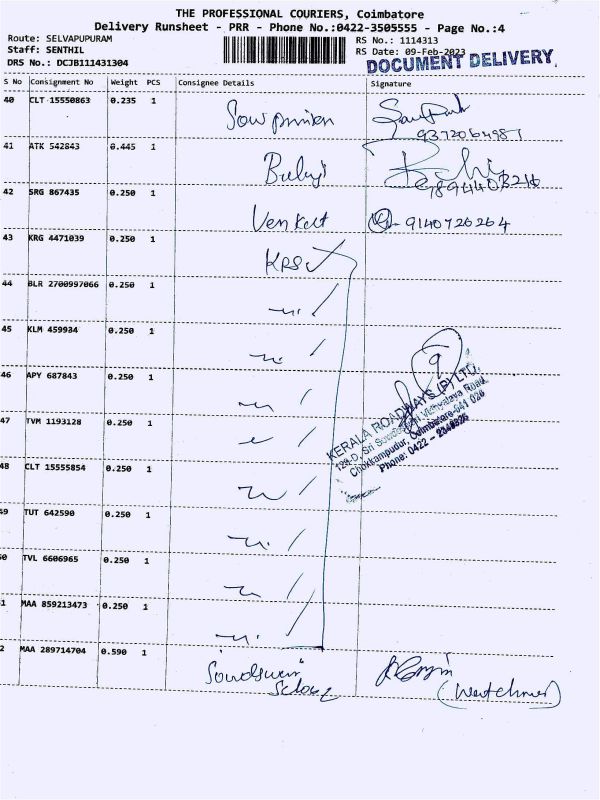 THE PROFESSIONAL COURIERS, Coimbatore
Delivery Runsheet - PRR - Phone No.:0422-3505555 - Page No.:4
Route: SELVAPUPURAM
Staff: SENTHIL
DRS No.: DCJB111431304
RS No.: 1114313
RS Date: 09-Feb-2023
DOCUMENT DELIVERY
S No Consignment No Weight PCS Consignee Details Signature
40 CLT 15550863 0.235 1
41 ATK 542843 0.445 1 Balaji
42 SRG 867435 0.250 1 Venkat 9140726264
43 KRG 4471039 0.250 1 KRS
44 BLR 2700997066 0.250 1
45 KLM 459934 0.250 1
46 APY 687843 0.250 1
47 TVM 1193128 0.250 1
48 CLT 15555854 0.250 1
49 TUT 642590 0.250 1
0 TVL 6606965 0.250 1
1 MAA 859213473 0.250 1
2 MAA 289714704 0.590 1
9
KERALA ROADWAYS (P) LTD.
Chokkampudur, Coimbatore-641 026
Phone: 0422 -
(Watchman)